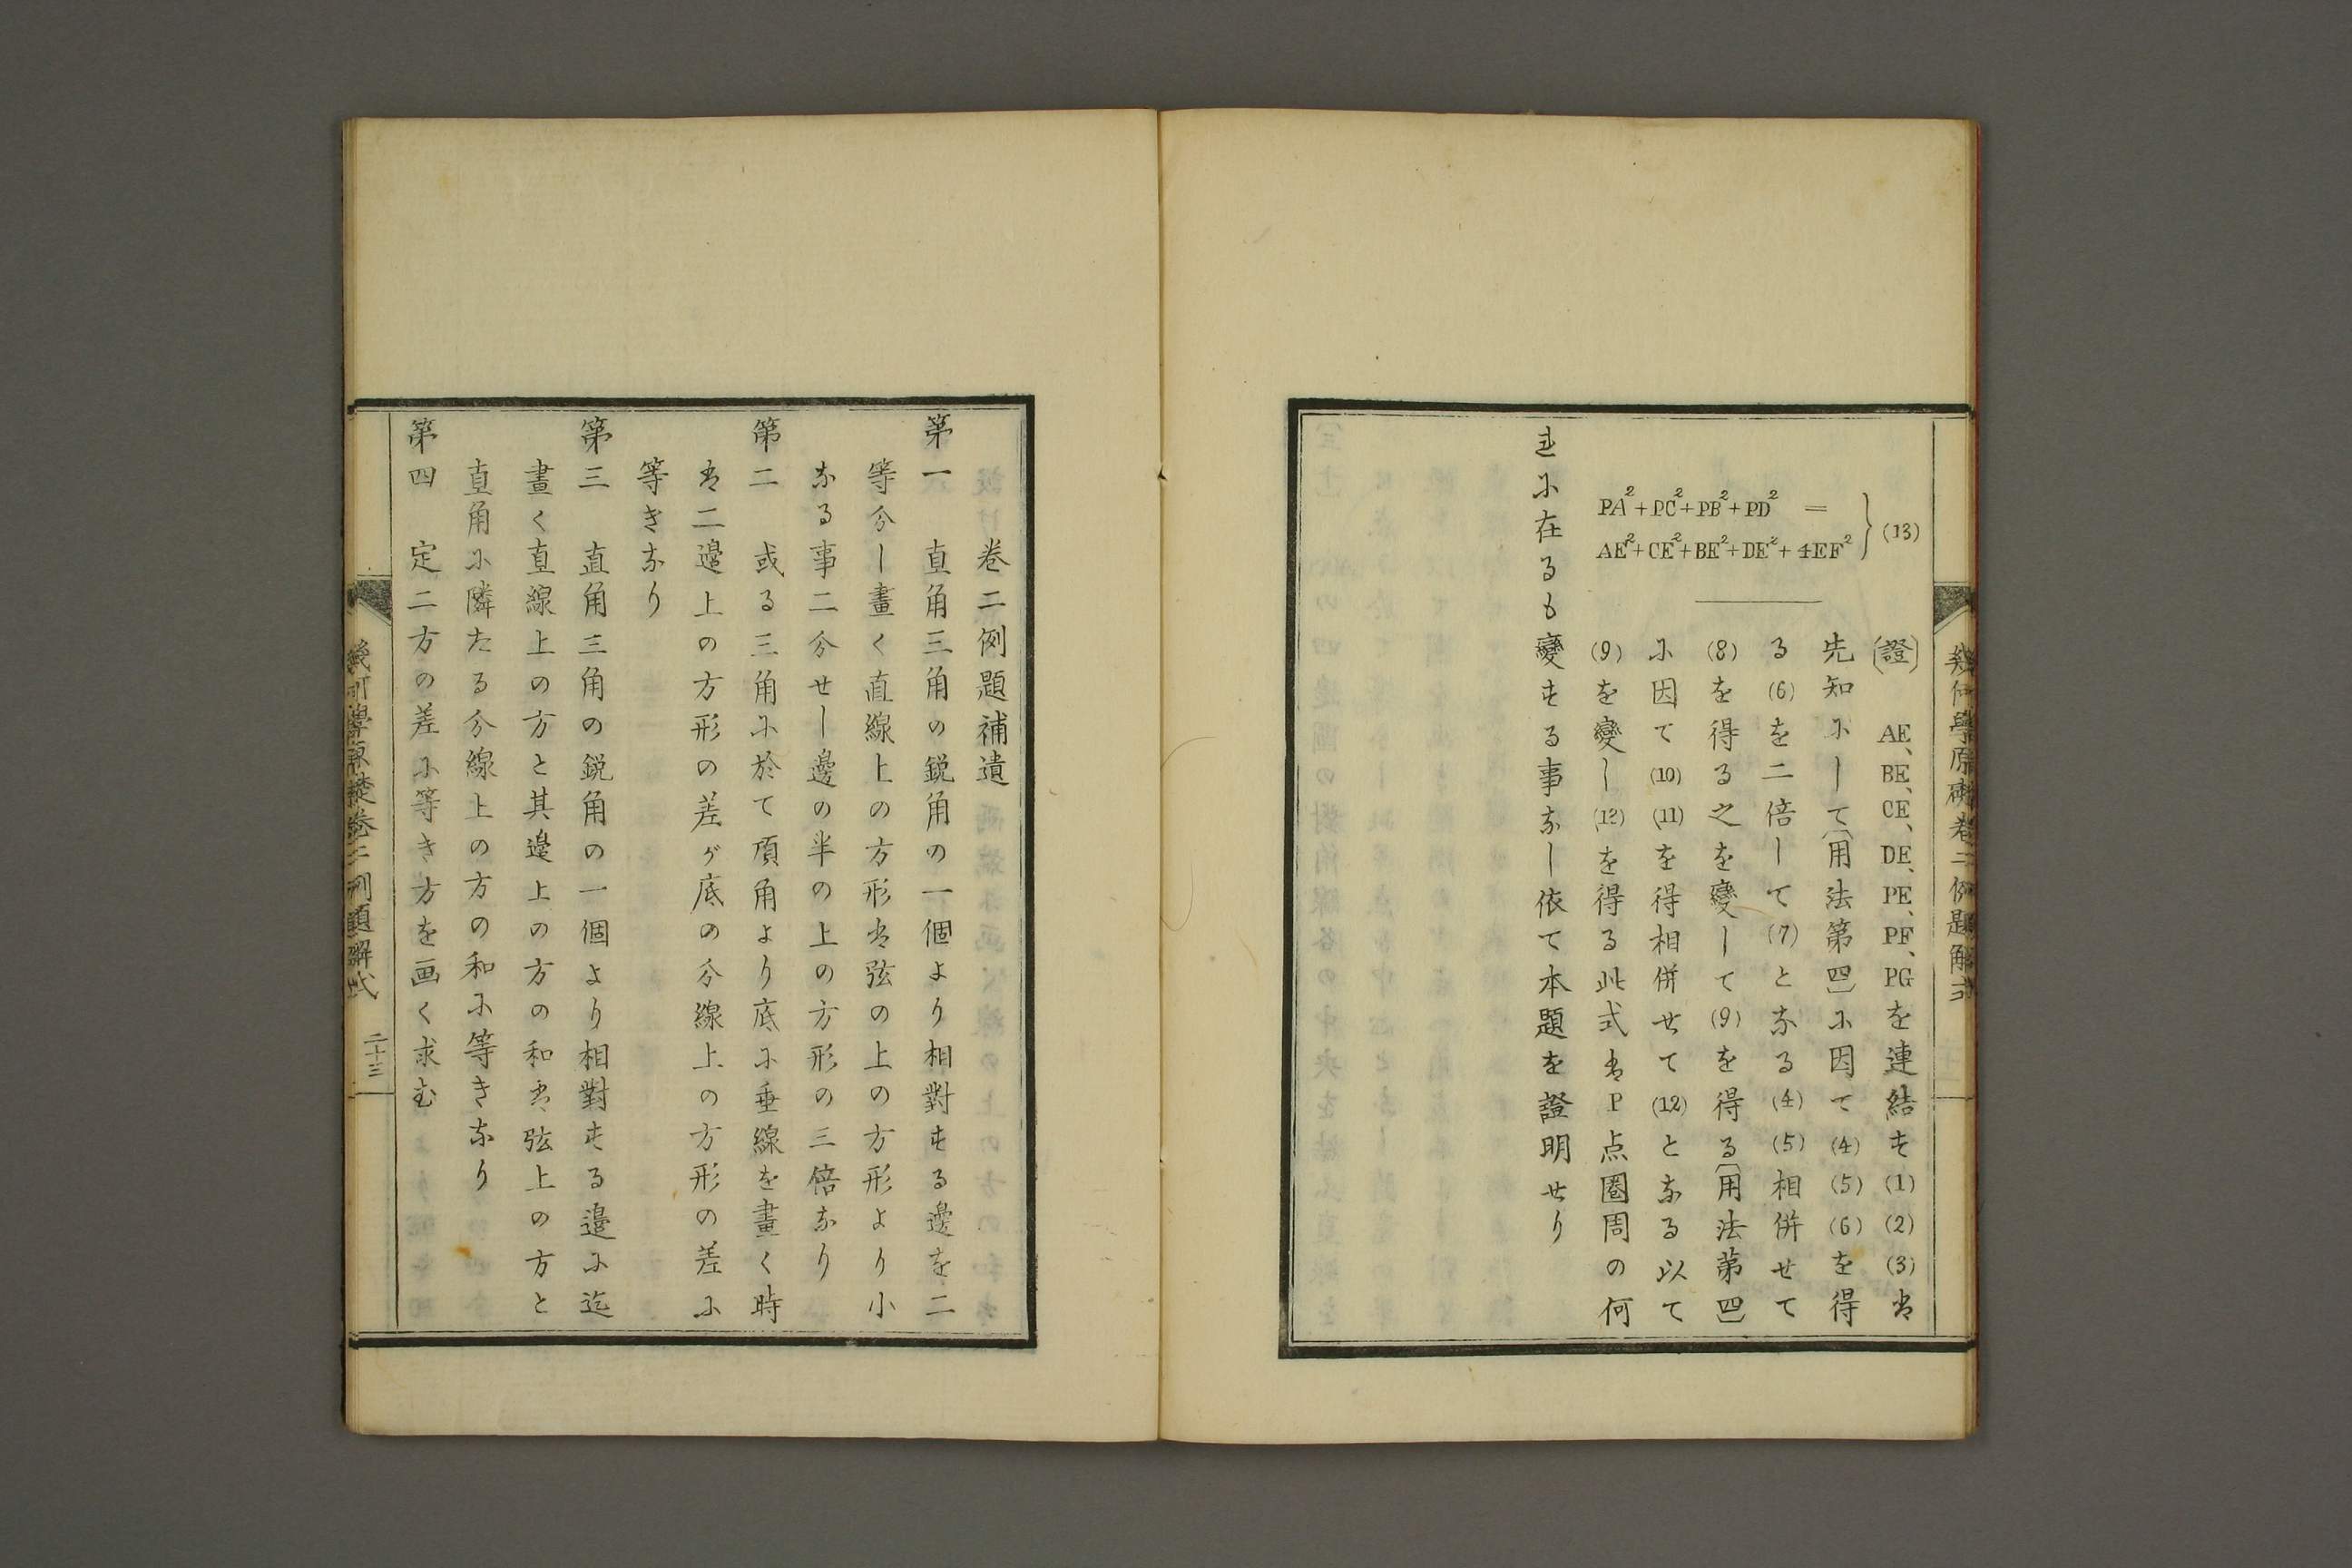 幾何學原礎卷二例題解式
PA²+PC²+PB²+PD² =
AE²+CE²+BE²+DE²+4EF² } (13)
〔證〕 AE、BE、CE、DE、PE、PF、PGを連結す(1)(2)(3)は
先知にして〔用法第四〕に因て(4)(5)(6)を得
る(6)を二倍して(7)となる(4)(5)相併せて
(8)を得る之を變して(9)を得る〔用法第四〕
に因て(10)(11)を得相併せて(12)となる以て
(9)を變し(12)を得る此式はP点圏周の何
れに在るも變する事なし依て本題を證明せり
卷二例題補遺
第一 直角三角の鋭角の一個より相對する邊を二
等分し畫く直線上の方形は弦の上の方形より小
なる事二分せし邊の半の上の方形の三倍なり
第二 或る三角に於て頂角より底に垂線を畫く時
は二邊上の方形の差が底の分線上の方形の差に
等きなり
第三 直角三角の鋭角の一個より相對する邊に迄
畫く直線上の方と其邊上の方の和は弦上の方と
直角に隣たる分線上の方の和に等きなり
第四 定二方の差に等き方を画く求む
幾何學原礎卷二例題解式 二十三